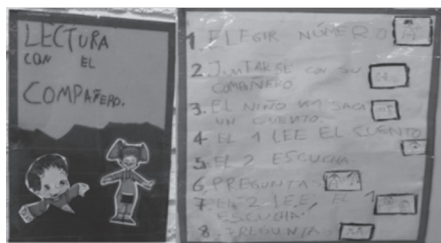 LECTURA
CON EL
COMPAÑERO.
1. ELEGIR NÚMERO
2. JUNTARSE CON SU
COMPAÑERO
3. EL NIÑO VA SACA
UN CUENTO.
4 EL 1 LEE EL CUENTO
5. EL 2 ESCUCHA
6. PREGUNTA
7. EL 2 LEE, EL 1
ESCUCHA
8. PREGUNTA